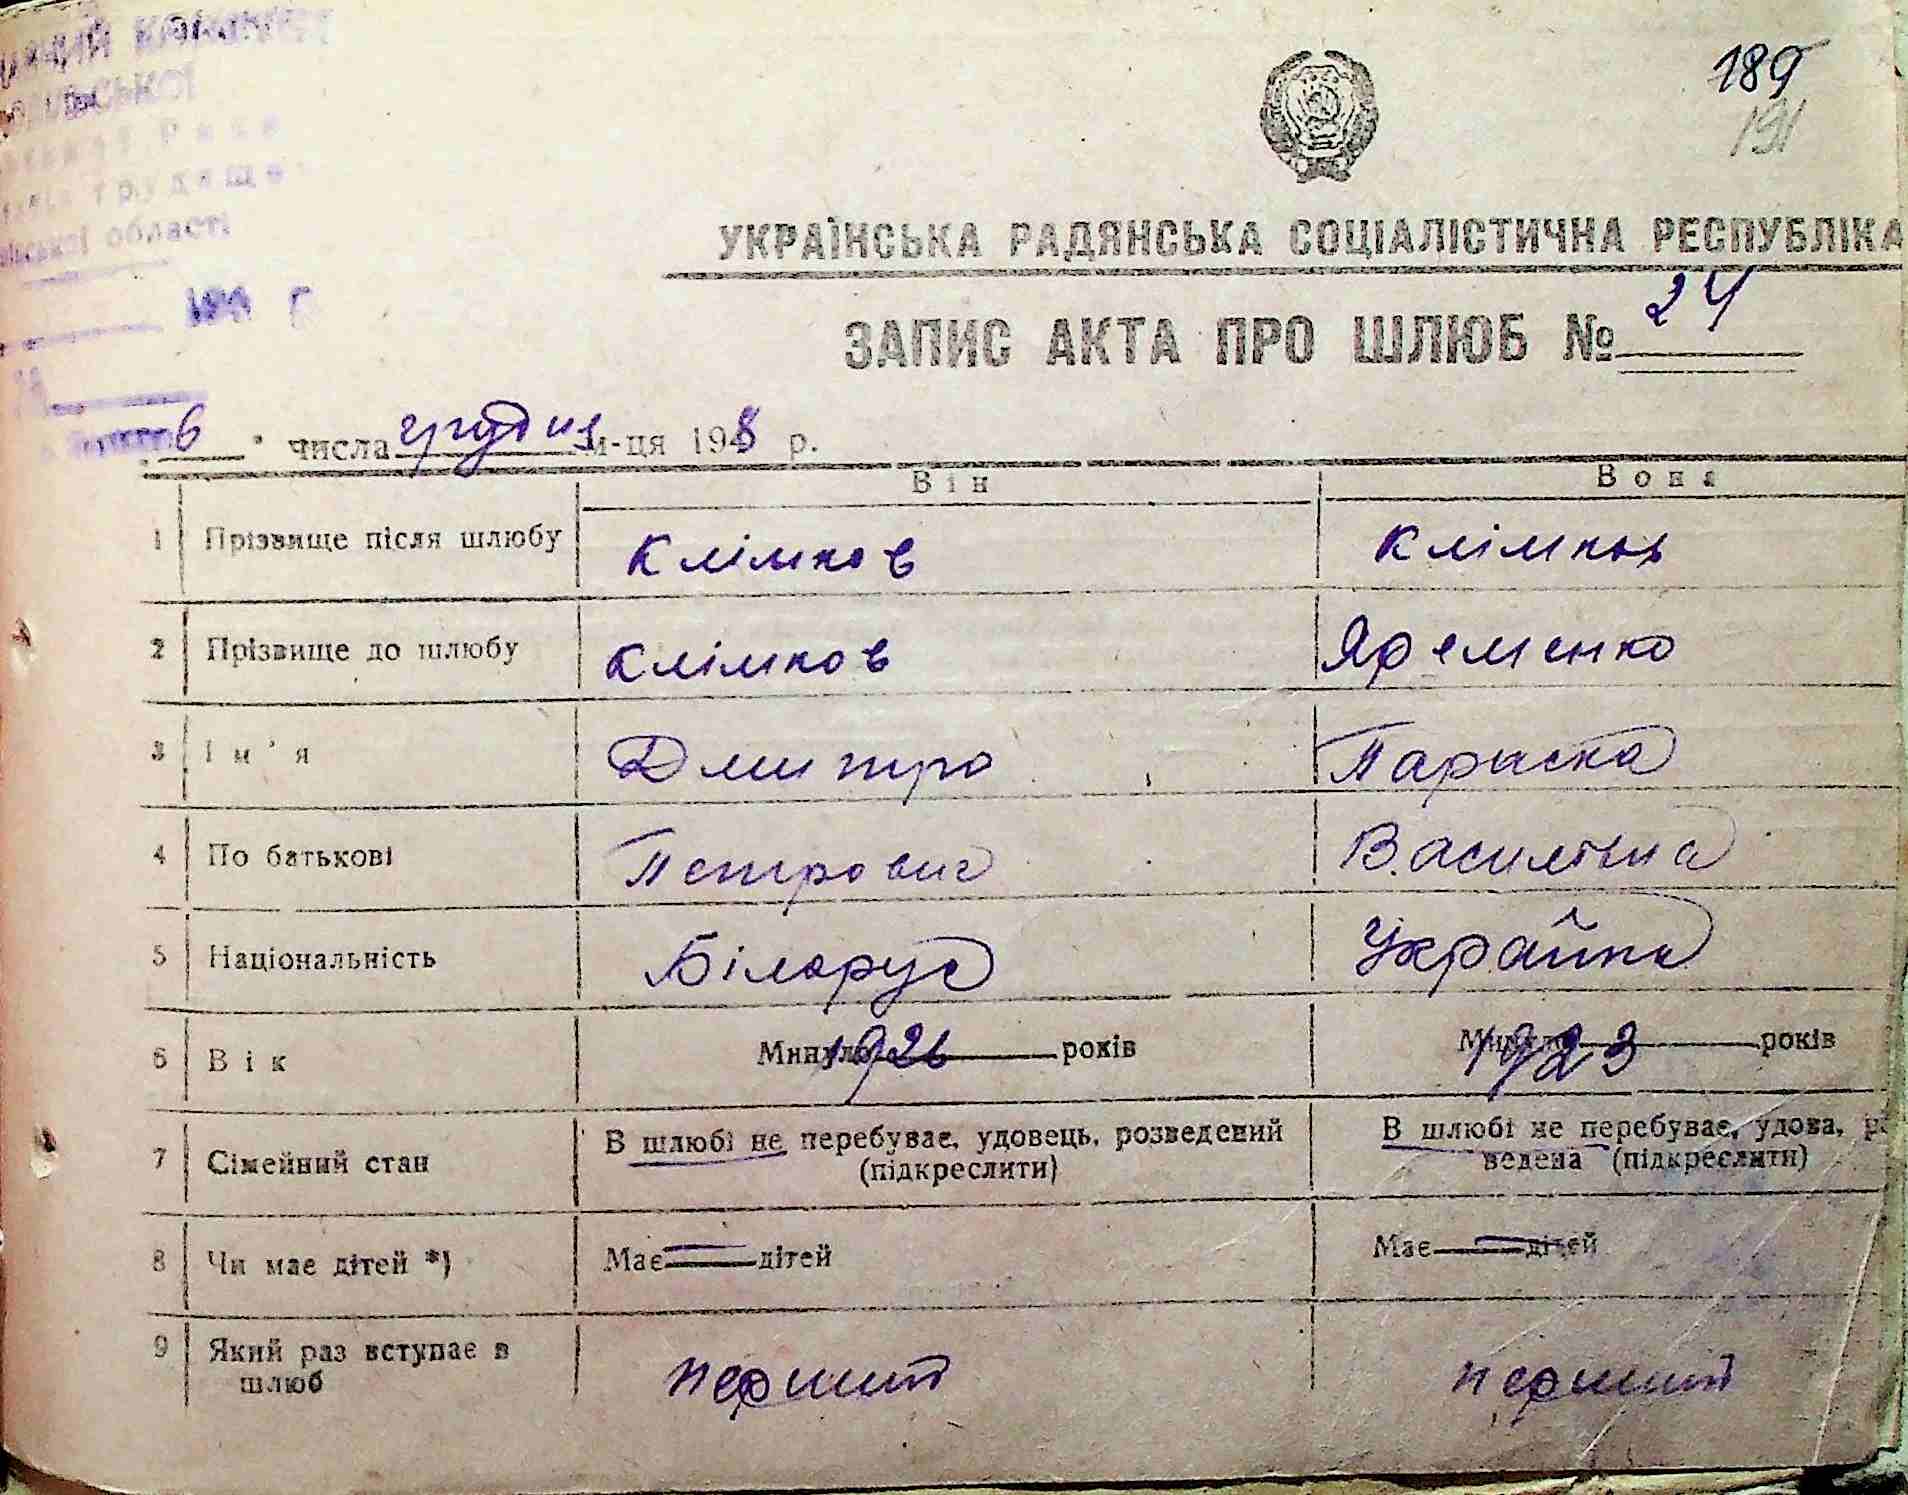 189
191
області
УКРАЇНСЬКА РАДЯНСЬКА СОЦІАЛІСТИЧНА РЕСПУБЛІКА
ЗАПИС АКТА ПРО ШЛЮБ № 24
6 числа грудня м-ця 1948 р.
Він Вона
1 Прізвище після шлюбу Клімков Клімков
2 Прізвище до шлюбу Клімков Яременко
3 Ім'я Дмитро Параска
4 По батькові Петрович Василівна
5 Національність Білорус Українка
6 Вік Минуло 1926 років Минуло 1923 років
7 Сімейний стан В шлюбі не перебуває, удовець, розведений В шлюбі не перебуває, удова, ро
(підкреслити) ведена (підкреслити)
8 Чи має дітей *) Має дітей Має дітей
9 Який раз вступає в
шлюб перший перший